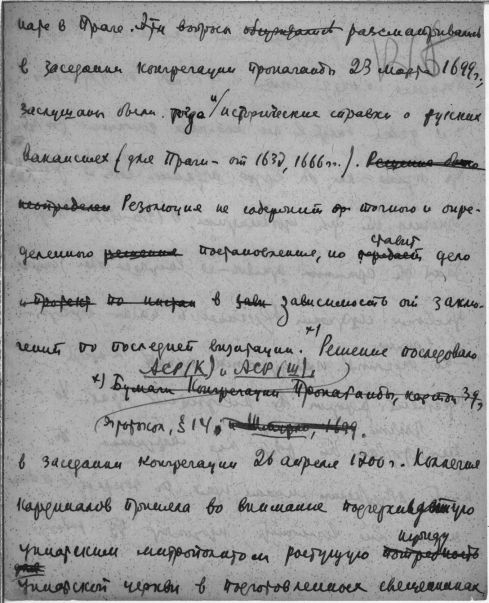 нате в Праге. Эти вопросы обсуждались рассматривались
в заседании Конгрегации Пропаганды 23 марта 1699 г.,
заслушаны были тогда и исторические справки о русских
вакансиях (для Праги – от 1638, 1666 гг.). Решение было
неопределен Резолюция не содержит точного и опре-
деленного решения постановление, но ставит передает дело
и проект по инстан в зави зависимость от заклю-
чений по последней визитации. *) Решение последовало
АСР(К) и АСР(Щ),
*) Бумаги Конгрегации Пропаганды, картон 39,
Протокол, § 14, 1699.
в заседании Конгрегации 26 апреля 1700 г. Коллегия
кардиналов приняла во внимание подчеркиваемую
нужду
униатским митрополитом растущую потребность
униатской церкви в подготовленных священниках